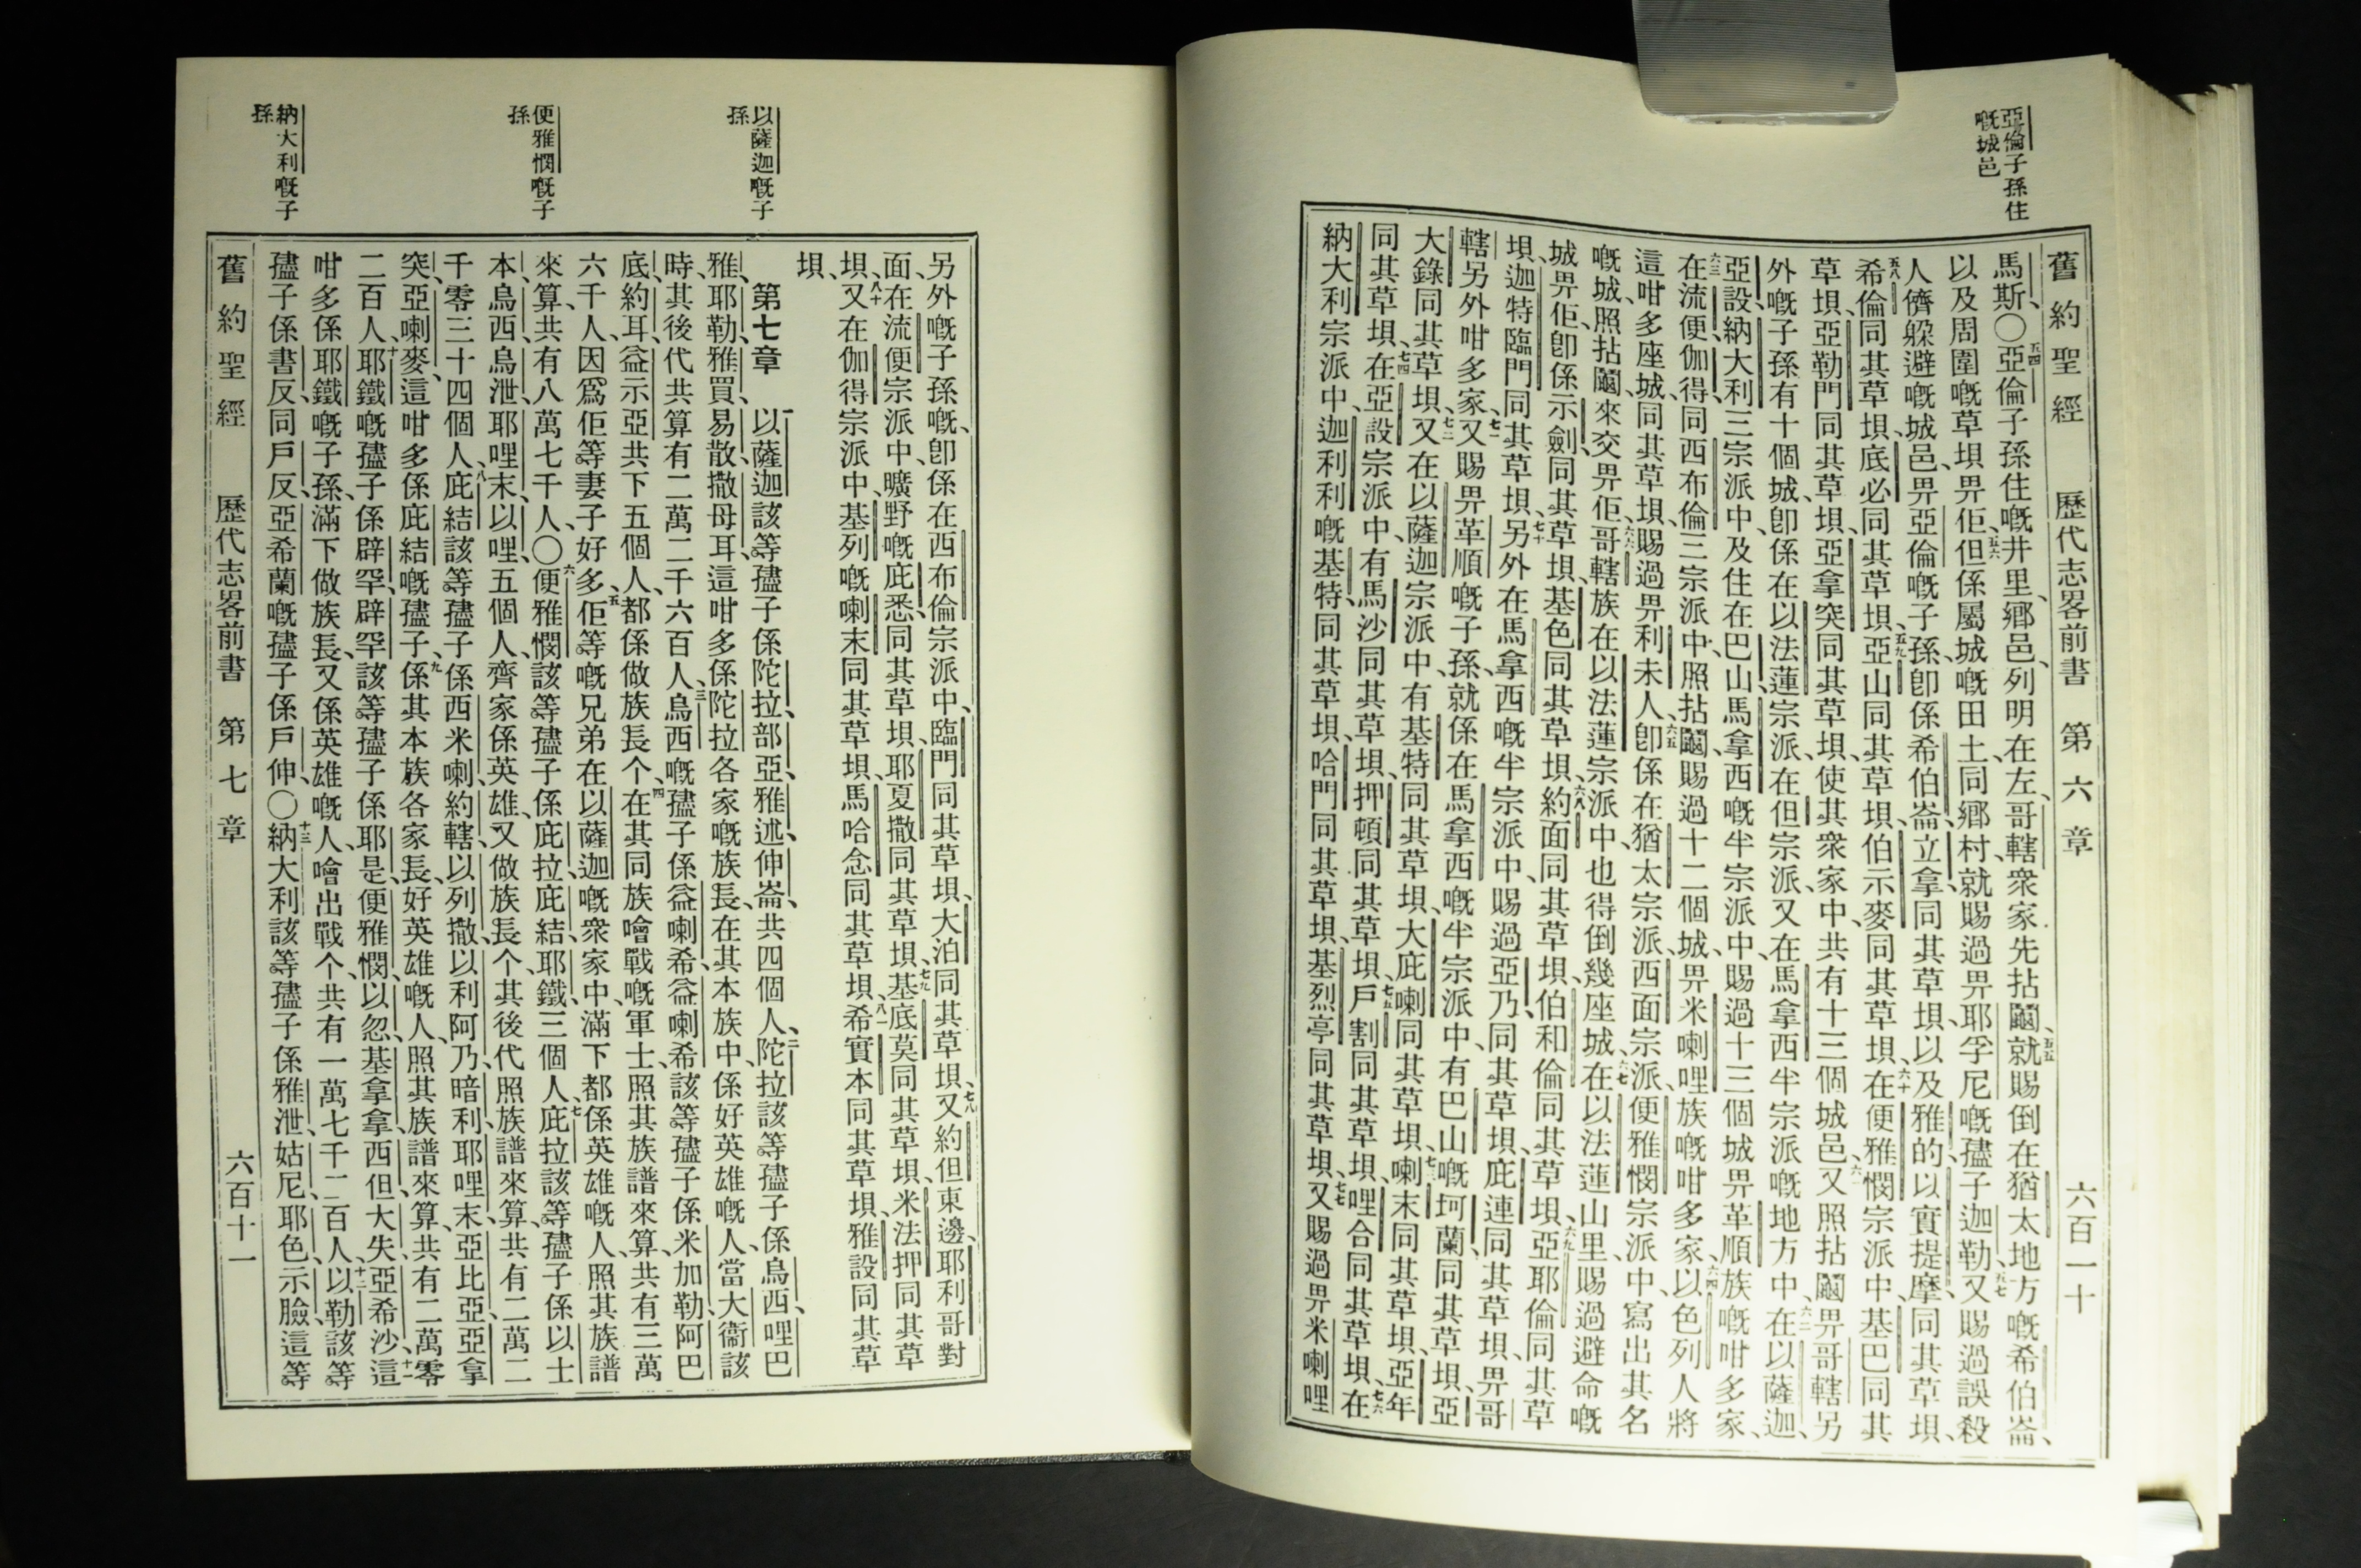 亞倫子孫住
嘅城邑
舊約聖經 歷代志畧前書 第六章 六百一十
馬斯、〇五四亞倫子孫住嘅井里、鄉邑、列明在左、哥轄衆家先拈鬮、五五就賜倒在猶太地方嘅希伯崙、
以及周圍嘅草垻畀佢、五六但係屬城嘅田土、同鄉村、就賜過畀耶孚尼嘅孻子迦勒、五七又賜過誤殺
人儕躲避嘅城邑、畀亞倫嘅子孫、卽係希伯崙、立拿、同其草垻、以及雅的、以實提摩、同其草垻、
五八希倫同其草垻、底必同其草垻、五九亞山同其草垻、伯示麥同其草垻、六十在便雅憫宗派中、基巴同其
草垻、亞勒門同其草垻、亞拿突同其草垻、使其衆家中、共有十三個城邑、六一又照拈鬮畀哥轄另
外嘅子孫有十個城、卽係在以法蓮宗派、在但宗派、又在馬拿西半宗派嘅地方中、六二在以薩迦、
亞設、納大利、三宗派中、及住在巴山、馬拿西嘅半宗派中、賜過十三個城畀革順族嘅咁多家、
六三在流便、伽得、同西布倫三宗派中、照拈鬮、賜過十二個城、畀米喇哩族嘅咁多家、六四以色列人將
這咁多座城、同其草垻、賜過畀利未人、六五卽係在猶太宗派、西面宗派、便雅憫宗派中、寫出其名
嘅城、照拈鬮、來交畀佢、六六哥轄族在以法蓮宗派中、也得倒幾座城、六七在以法蓮山里、賜過避命嘅
城畀佢、卽係示劍、同其草垻、基色同其草垻、六八約面同其草垻、伯和倫同其草垻、六九亞耶倫同其草
垻、迦特臨門同其草垻、七十另外在馬拿西嘅半宗派中、賜過亞乃、同其草垻、庇連同其草垻、畀哥
轄另外咁多家、七一又賜畀革順嘅子孫、就係在馬拿西嘅半宗派中、有巴山嘅坷蘭同其草垻、亞
大錄同其草垻、七二又在以薩迦宗派中、有基特同其草垻、大庇喇同其草垻、七三喇末同其草垻、亞年
同其草垻、七四在亞設宗派中、有馬沙同其草垻、押頓同其草垻、七五戶割同其草垻、哩合同其草垻、七六在
納大利宗派中、迦利利嘅基特、同其草垻、哈門同其草垻、基烈亭同其草垻、七七又賜過畀米喇哩
以薩迦嘅子
孫
便雅憫嘅子
孫
納大利嘅子
孫
另外嘅子孫嘅、卽係在西布倫宗派中、臨門同其草垻、大泊同其草垻、七八又約但東邊、耶利哥對
面、在流便宗派中、曠野嘅庇悉、同其草垻、耶夏撒同其草垻、七九基底莫同其草垻、米法押同其草
垻、八十又在伽得宗派中、基列嘅喇末同其草垻、馬哈念同其草垻、八一希實本同其草垻、雅設同其草
垻、
第七章 一以薩迦該等孻子係陀拉、部亞、雅述、伸崙、共四個人、二陀拉該等孻子、係烏西、哩巴
雅、耶勒、雅買、易散、撒母耳、這咁多係陀拉各家嘅族長、在其本族中、係好英雄嘅人、當大衞該
時、其後代共算有二萬二千六百人、三烏西嘅孻子係益喇希、益喇希該等孻子係米加勒、阿巴
底、約耳、益示亞共下五個人、都係做族長个、四在其同族噲戰嘅軍士、照其族譜來算、共有三萬
六千人、因爲佢等妻子好多、五佢等嘅兄弟在以薩迦嘅衆家中、滿下都係英雄嘅人、照其族譜
來算、共有八萬七千人、〇六便雅憫該等孻子係庇拉、庇結、耶鐵、三個人、七庇拉該等孻子係以士
本、烏西、烏泄、耶哩末、以哩、五個人、齊家係英雄、又做族長个、其後代照族譜來算、共有二萬二
千零三十四個人、八庇結該等孻子係西米喇、約轄、以列撒、以利阿乃、暗利、耶哩末、亞比亞、亞拿
突、亞喇麥、這咁多係庇結嘅孻子、九係其本族各家長、好英雄嘅人、照其族譜來算、共有二萬零
二百人、十耶鐵嘅孻子係辟罕、辟罕該等孻子係耶是、便雅憫、以忽、基拿拿、西但、大失、亞希沙、十一這
咁多係耶鐵嘅子孫、滿下做族長、又係英雄嘅人、噲出戰个、共有一萬七千二百人、十二以勒該等
孻子係書反、同戶反、亞希蘭嘅孻子係戶伸、〇十三納大利該等孻子係雅泄、姑尼、耶色、示臉、這等
舊約聖經 歷代志畧前書 第七章 六百十一